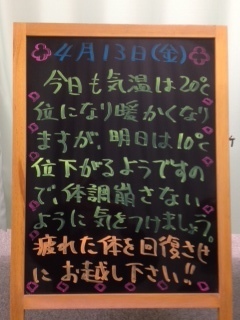 4月13日(金)
今日も気温は20℃
位になり暖かくなり
ますが、明日は10℃
位下がるようですの
で、体調崩さない
ように気をつけましょう。
疲れた体を回復させ
にお越し下さい!!